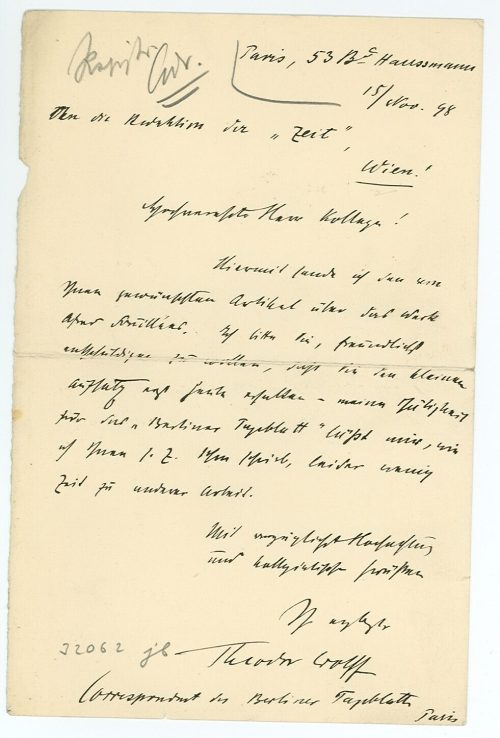 Paris, 53 Bd Haussmann
15/Nov. 98
An die Redaktion der „Zeit",
Wien!
Hochverehrter Herr Kollege!
Hiermit sende ich den von
Ihnen gewünschten Artikel über das Werk
Ich bitte Sie, freundlichst
entschuldigen zu wollen, daß Sie den kleinen
Aufsatz erst heute erhalten – meine Thätigkeit
für das „Berliner Tageblatt" läßt mir, wie
ich Ihnen s. Z. schon schrieb, leider wenig
Zeit zu anderer Arbeit.
Mit vorzüglicher Hochachtung
und kollegialischen Grüßen
Ihr ergebener
32062
Theodor Wolff
Correspondent des Berliner Tageblatts
Paris